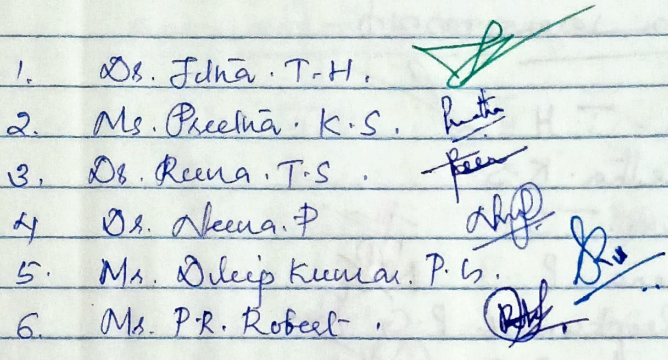 1. Dr. Jitha. T.H.
2. Ms. Preetha. K.S. Preetha
3. Dr. Reena. T.S. Reena
4 Dr. Neena. P
5. Mr. Dileep Kumar. P. G.
6. Mr. P.R. Robert.